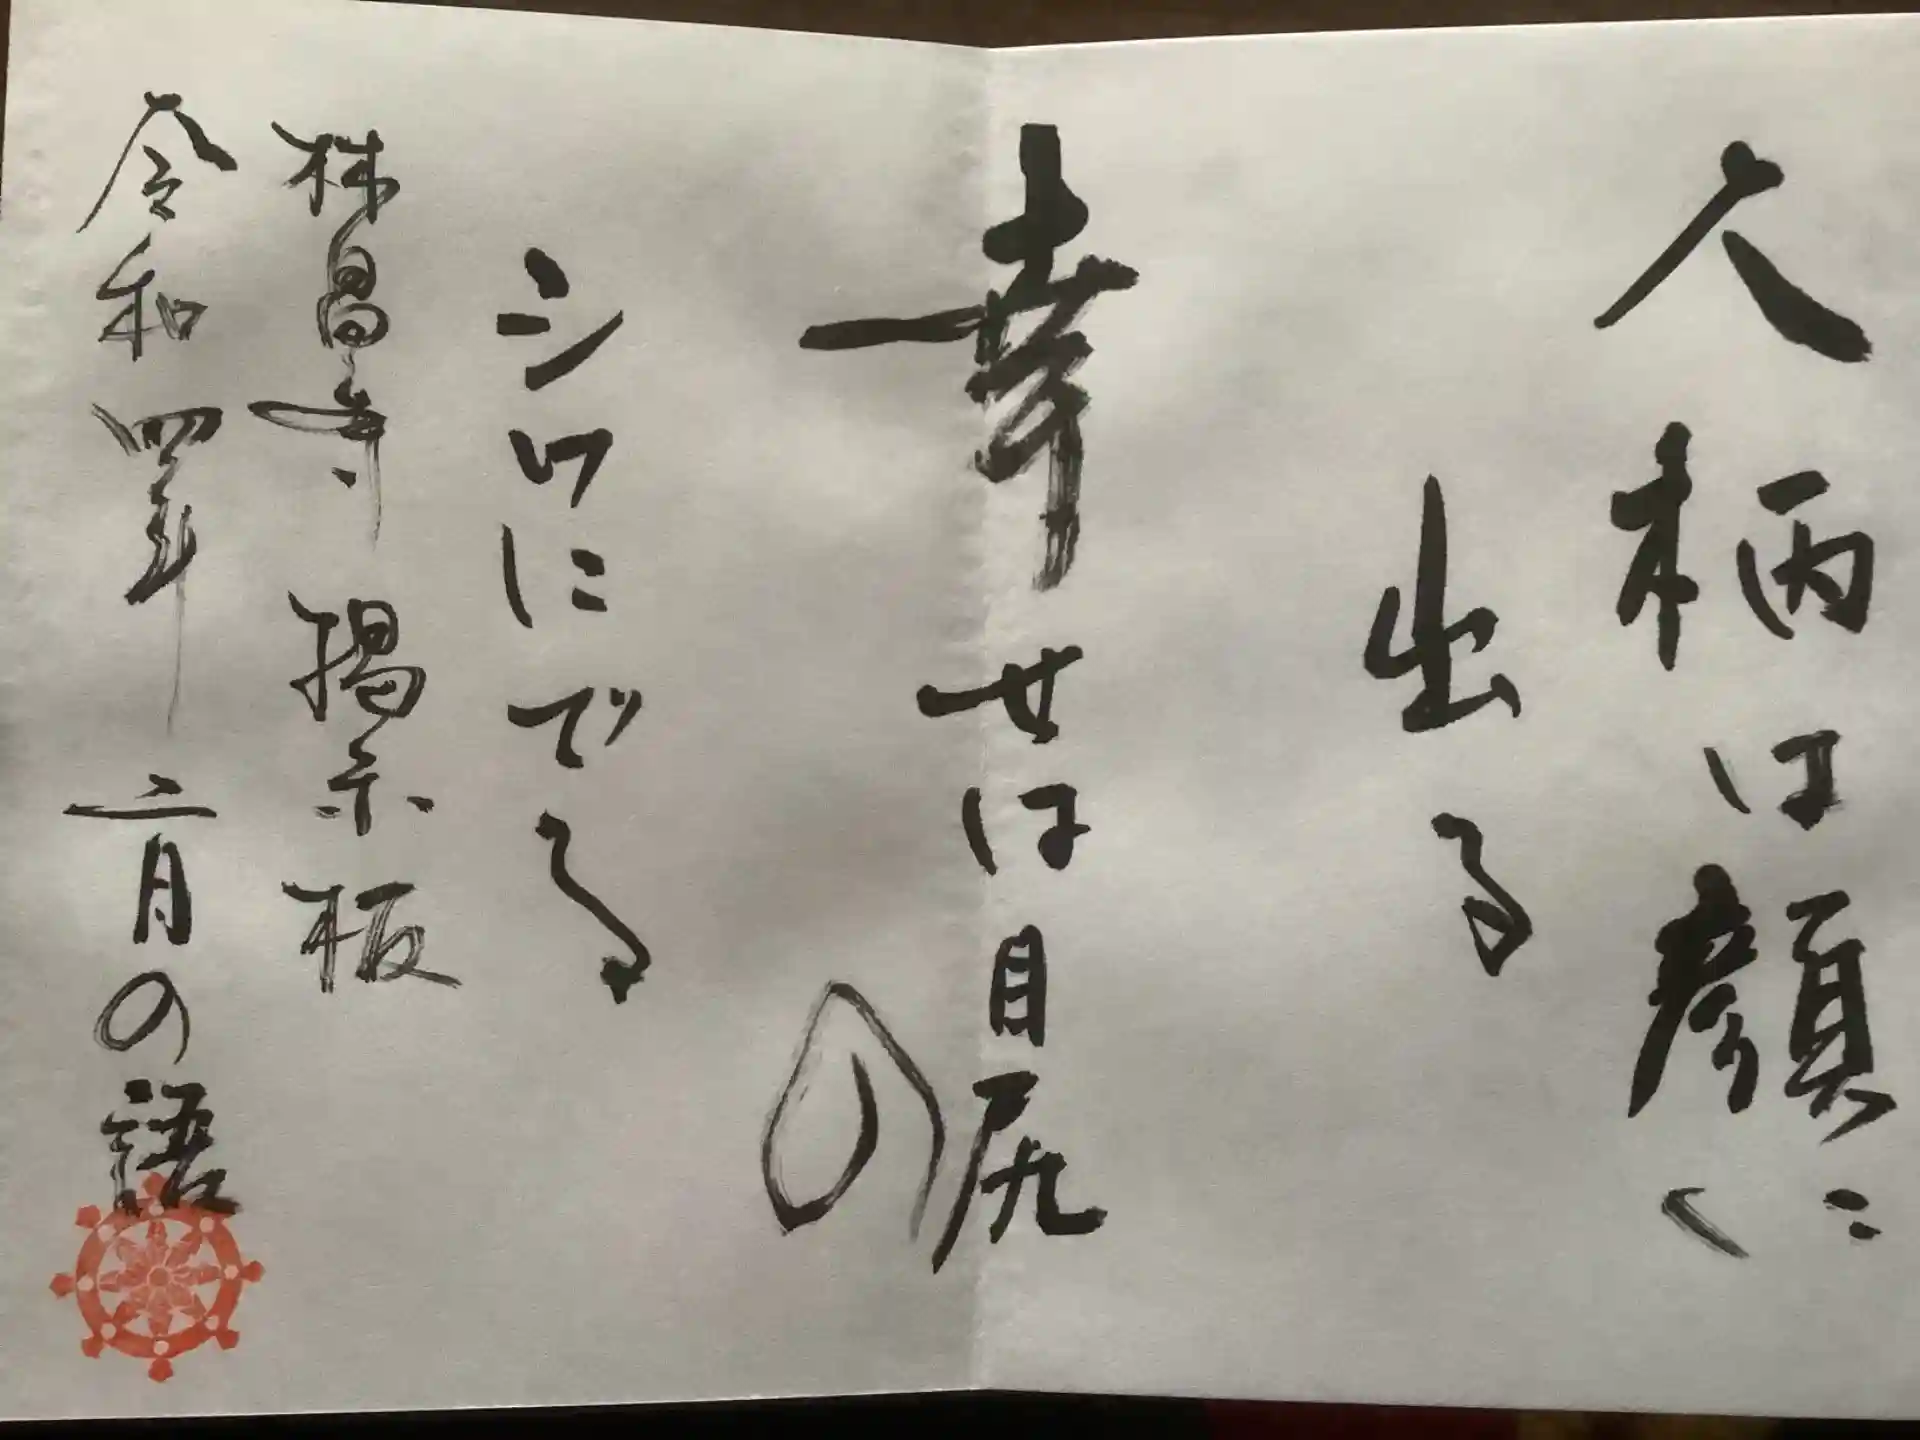 人柄は顔に
出る
幸せは目尻の
シワにでる
林昌寺 掲示板
令和四年 二月の語